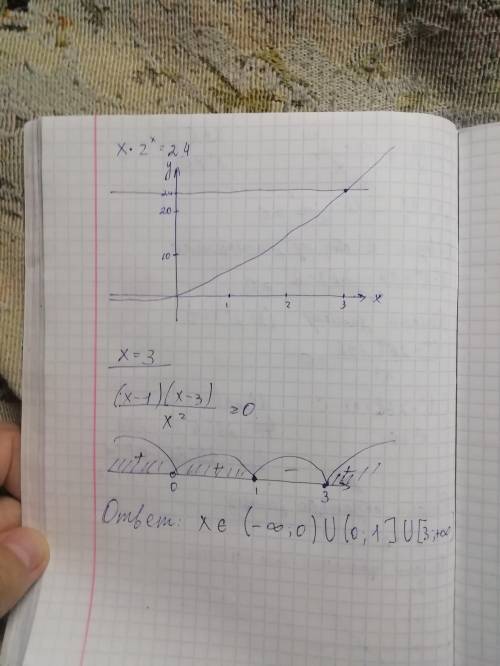 x · 2ˣ = 24
y
24
20
10
1 2 3 x
x = 3
(x-1)(x-3)
x² ≥0
+ + - +
0 1 3
Ответ: x ∈ (-∞, 0) ∪ (0, 1] ∪ [3; +∞)